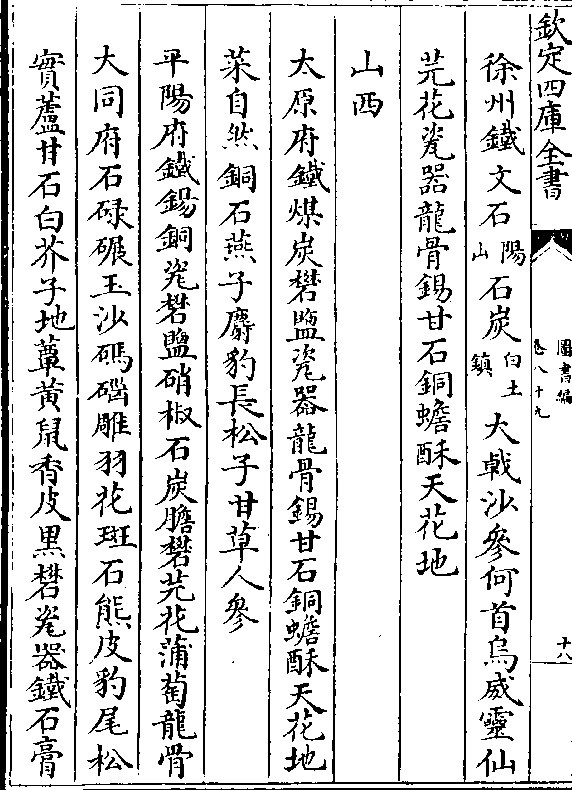 欽定四庫全書
圖書編
卷八十九
十八
徐州鐵文石陽山石炭白土鎮大戟沙參何首烏威靈仙
芫花瓷器龍骨錫甘石銅蟾酥天花地
山西
太原府鐵煤炭礬鹽瓷器龍骨錫甘石銅蟾酥天花地
菜自然銅石燕子麝豹長松子甘草人參
平陽府鐵錫銅瓷礬鹽硝椒石炭膽礬芫花蒲萄龍骨
大同府石碌碾玉沙碼碯雕羽花斑石熊皮豹尾松
實蘆甘石白芥子地蕈黃鼠香皮黑礬瓷器鐵石膏